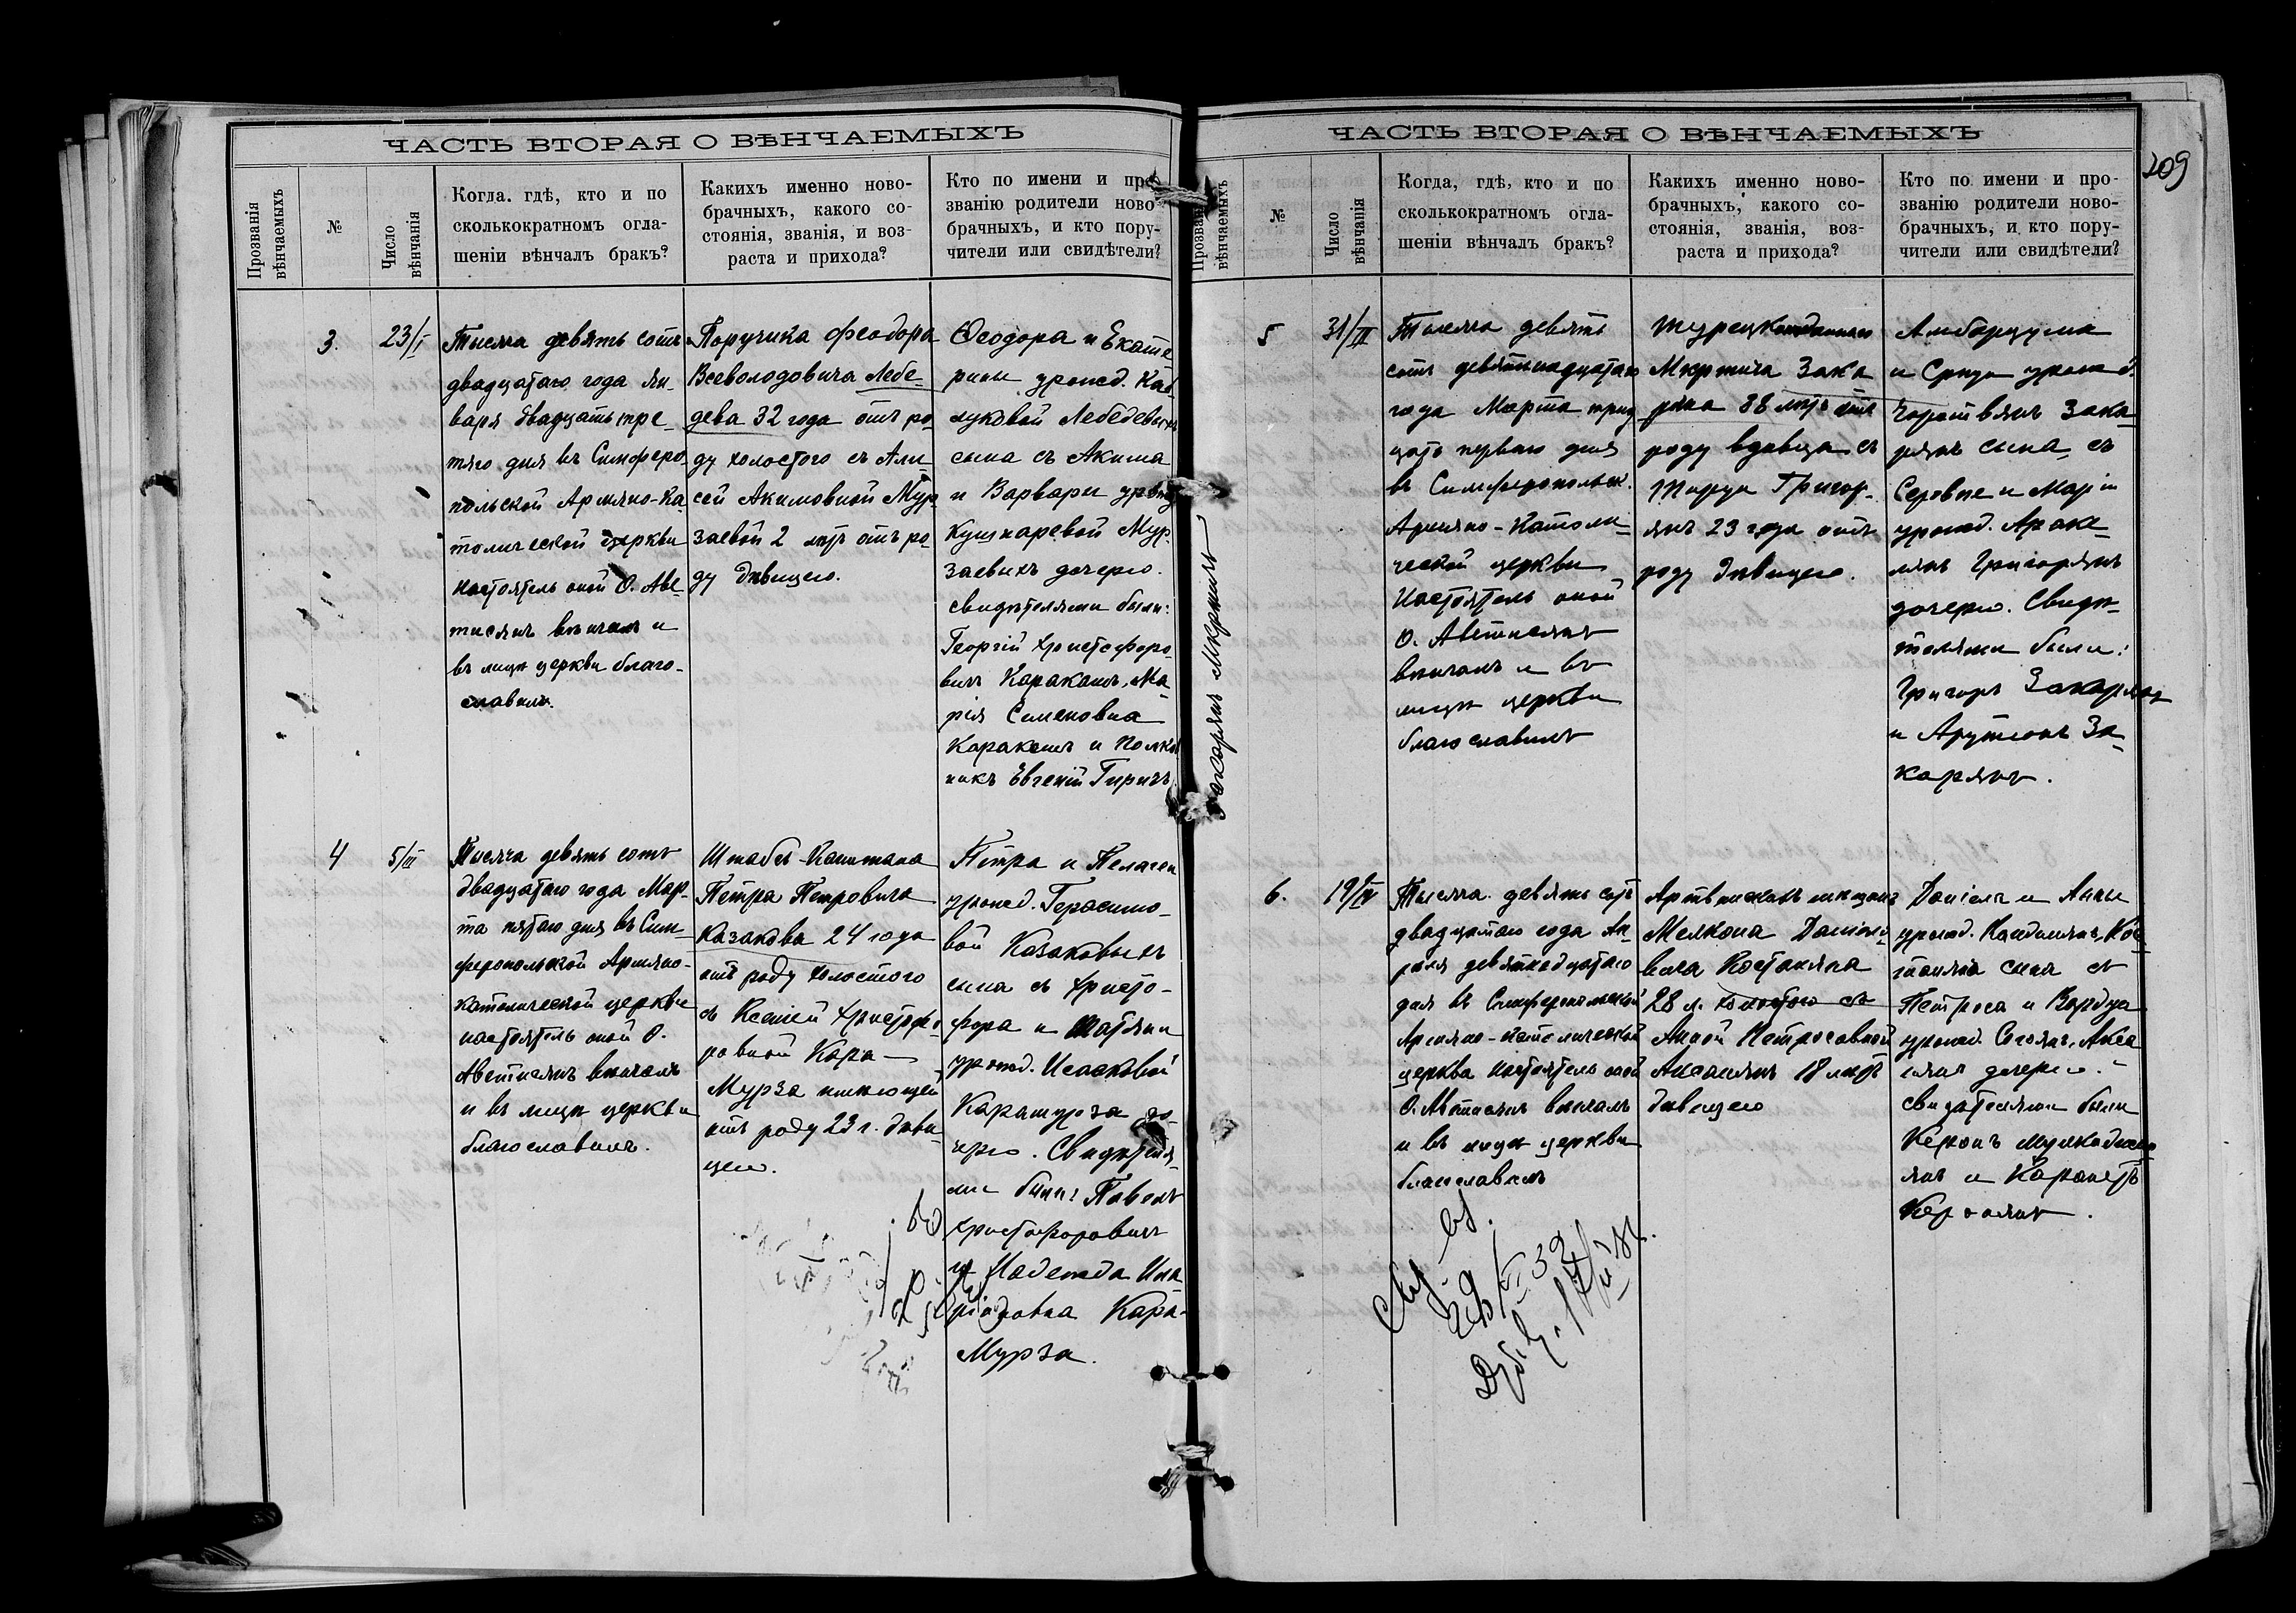 ЧАСТЬ ВТОРАЯ О ВѢНЧАЕМЫХЪ
Прозванія
вѣнчаемыхъ
№
Число
вѣнчанія
Когда. гдѣ, кто и по
сколькократномъ огла-
шеніи вѣнчалъ бракъ?
Какихъ именно ново-
брачныхъ, какого со-
стоянія, званія, и воз-
раста и прихода?
Кто по имени и про-
званію родители ново-
брачныхъ, и кто пору-
чители или свидѣтели?
3.
23/I
Тысяча девять сотъ
двадцатаго года ян-
варя двадцать тре-
тяго дня въ Симферо-
польской Армяно-ка
толической церкви
настоятель оной О. Аве-
тисянъ вѣнчалъ и
въ лицѣ церкви благо-
славилъ.
Поручика Феодора
Всеволодовича Лебе-
дева 32 года отъ ро-
ду холостого съ Али-
сей Акимовной Мур-
заевой 2 лѣтъ отъ ро-
ду дѣвицею.
Ѳеодора и Екате
рины урожд.
Лебедевыхъ
сына съ Акима
и Варвары урожд
Кушнаревой Мур-
заевыхъ дочерью.
свидѣтелями были:
Георгій Христофоро-
вичъ Каракашъ, Ма-
рія Семеновна
Каракашъ и Полков
никъ Евгеній Гиричъ
4
5/III
Тысяча девять сотъ
двадцатаго года Мар-
та пятаго дня въ Сим-
феропольской Армяно-
католической церкви
настоятель оной О.
Аветисянъ вѣнчалъ
и въ лицѣ церкви
благославилъ.
Штабсъ-Капитана
Петра Петровича
Казакова 24 года
отъ роду холостого
съ Ксеніей Христофо
ровной Кара-
Мурза имѣющей
отъ роду 23 г. дѣви-
цею.
Петра и Пелагеи
урожд. Герасимо-
вой Казаковыхъ
сына съ Христо-
фора и Татьяны
урожд. Исаковой
Карамурза до-
черью. Свидѣтеля-
ми были: Павелъ
Христофоровичъ
и Надежда
Кара-
Мурза.
ЧАСТЬ ВТОРАЯ О ВѢНЧАЕМЫХЪ
209
Прозванія
вѣнчаемыхъ
№
Число
вѣнчанія
Когда, гдѣ, кто и по
сколькократномъ огла-
шеніи вѣнчалъ бракъ?
Какихъ именно ново-
брачныхъ, какого со-
стоянія, званія, воз-
раста и прихода?
Кто по имени и про-
званію родители ново-
брачныхъ, и кто пору-
чители или свидѣтели?
Закарянъ Мкртичъ
5
31/III
Тысяча девять
сотъ девятнадцатаго
года Марта трид
цать перваго дня
въ Симферопольск.
Армяно-Католи-
ческой церкви
Настоятель оной
О. Аветисянъ
вѣнчалъ и въ
лицѣ церкви
благославилъ
Мкртича Зака
ряна 38 лѣтъ отъ
роду вдовца съ
Григор-
янъ 23 года отъ
роду дѣвицею.
Амбарцума
и урожд.
Зака-
рянъ сына, съ
и Маріи
урожд. Араке-
лянъ Григорянъ
дочерью. Свидѣ-
телями были:
Григоръ Закарянъ
и Арутюнъ За-
карянъ.
6.
19/IV
Тысяча девять сотъ
двадцатаго года Ап-
реля девятнадцатаго
дня въ Симферопольской
Армяно-католической
церкви настоятель оной
О. Аветисянъ вѣнчалъ
и въ лицѣ церкви
благославилъ
Артвинскаго мещан.
Мелкона Даніило-
вича Костаняна
28 л. холостого съ
Анной Петросовной
18 лѣтъ
дѣвицею
Даніила и Анны
урожд. Кос-
таняна сына съ
Петроса и
урожд.
дочерью.
свидѣтелями были
и Карапетъ